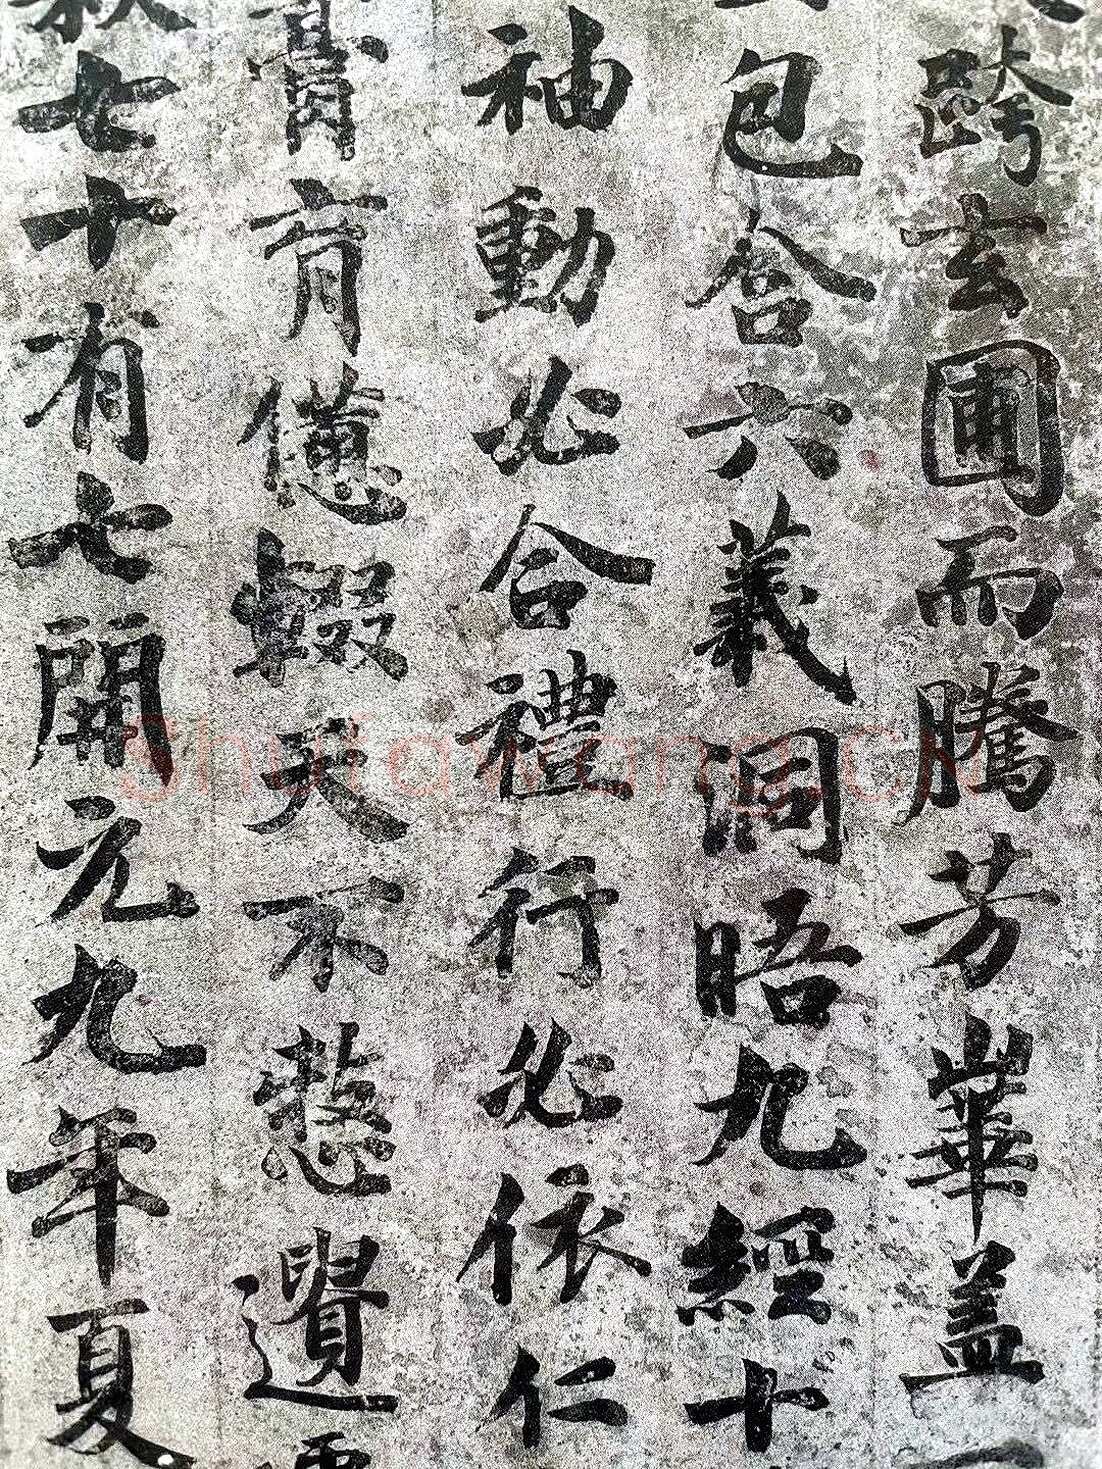 跨玄圃而騰芳華盖
包含六義洞晤九經十
袖動必合禮行必依仁
膏肓傋輟天不憖遺
七十有七開元九年夏
Shufawang.cn